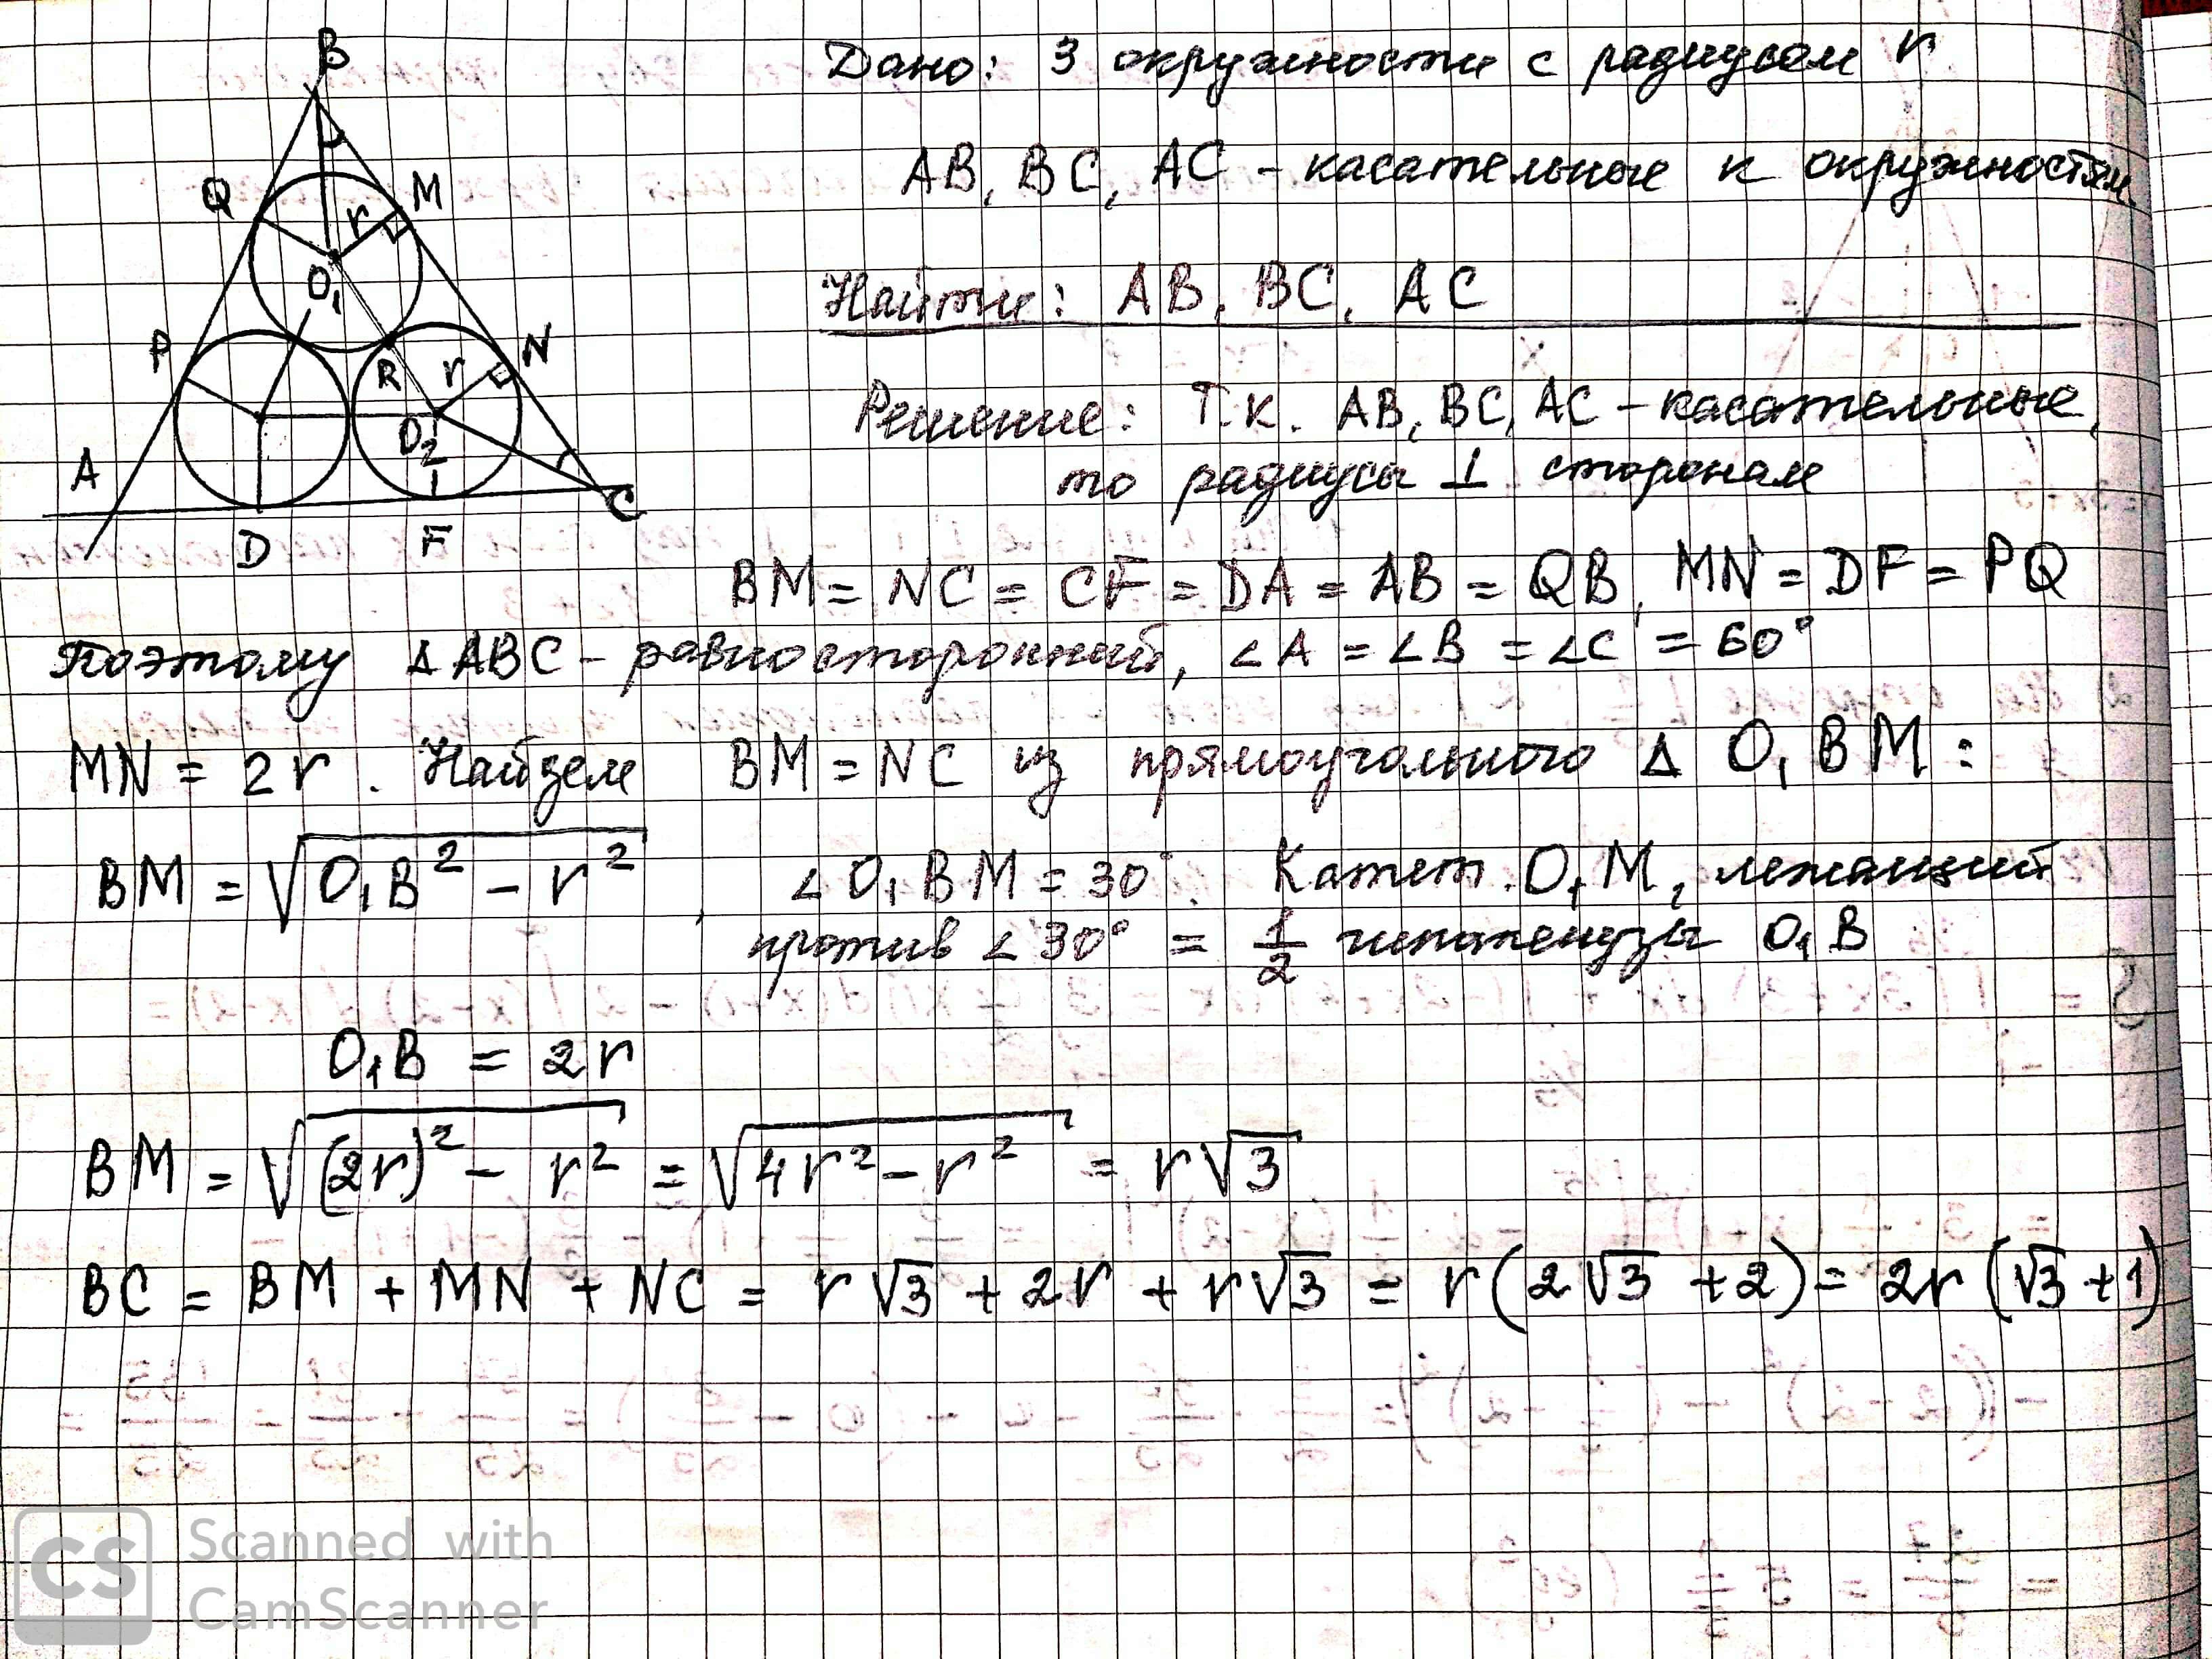 B
Q
M
r
O₁
P
N
R
r
O₂
A
C
D
F
Дано: 3 окружности с радиусом r
AB, BC, AC - касательные к окружностям
Найти: AB, BC, AC
Решение: Т.к. AB, BC, AC - касательные,
то радиусы ⊥ сторонам
BM = NC = CF = DA = AB = QB, MN = DF = PQ
Поэтому Δ ABC - равносторонний, ∠A = ∠B = ∠C = 60°
MN = 2r. Найдем BM = NC из прямоугольного Δ O₁BM:
BM = √(O₁B² - r²), ∠O₁BM = 30°. Катет O₁M, лежащий
против ∠30° = 1/2 гипотенузы O₁B
O₁B = 2r
BM = √((2r)² - r²) = √(4r² - r²) = r√3
BC = BM + MN + NC = r√3 + 2r + r√3 = r(2√3 + 2) = 2r(√3 + 1)
CS Scanned with
CamScanner